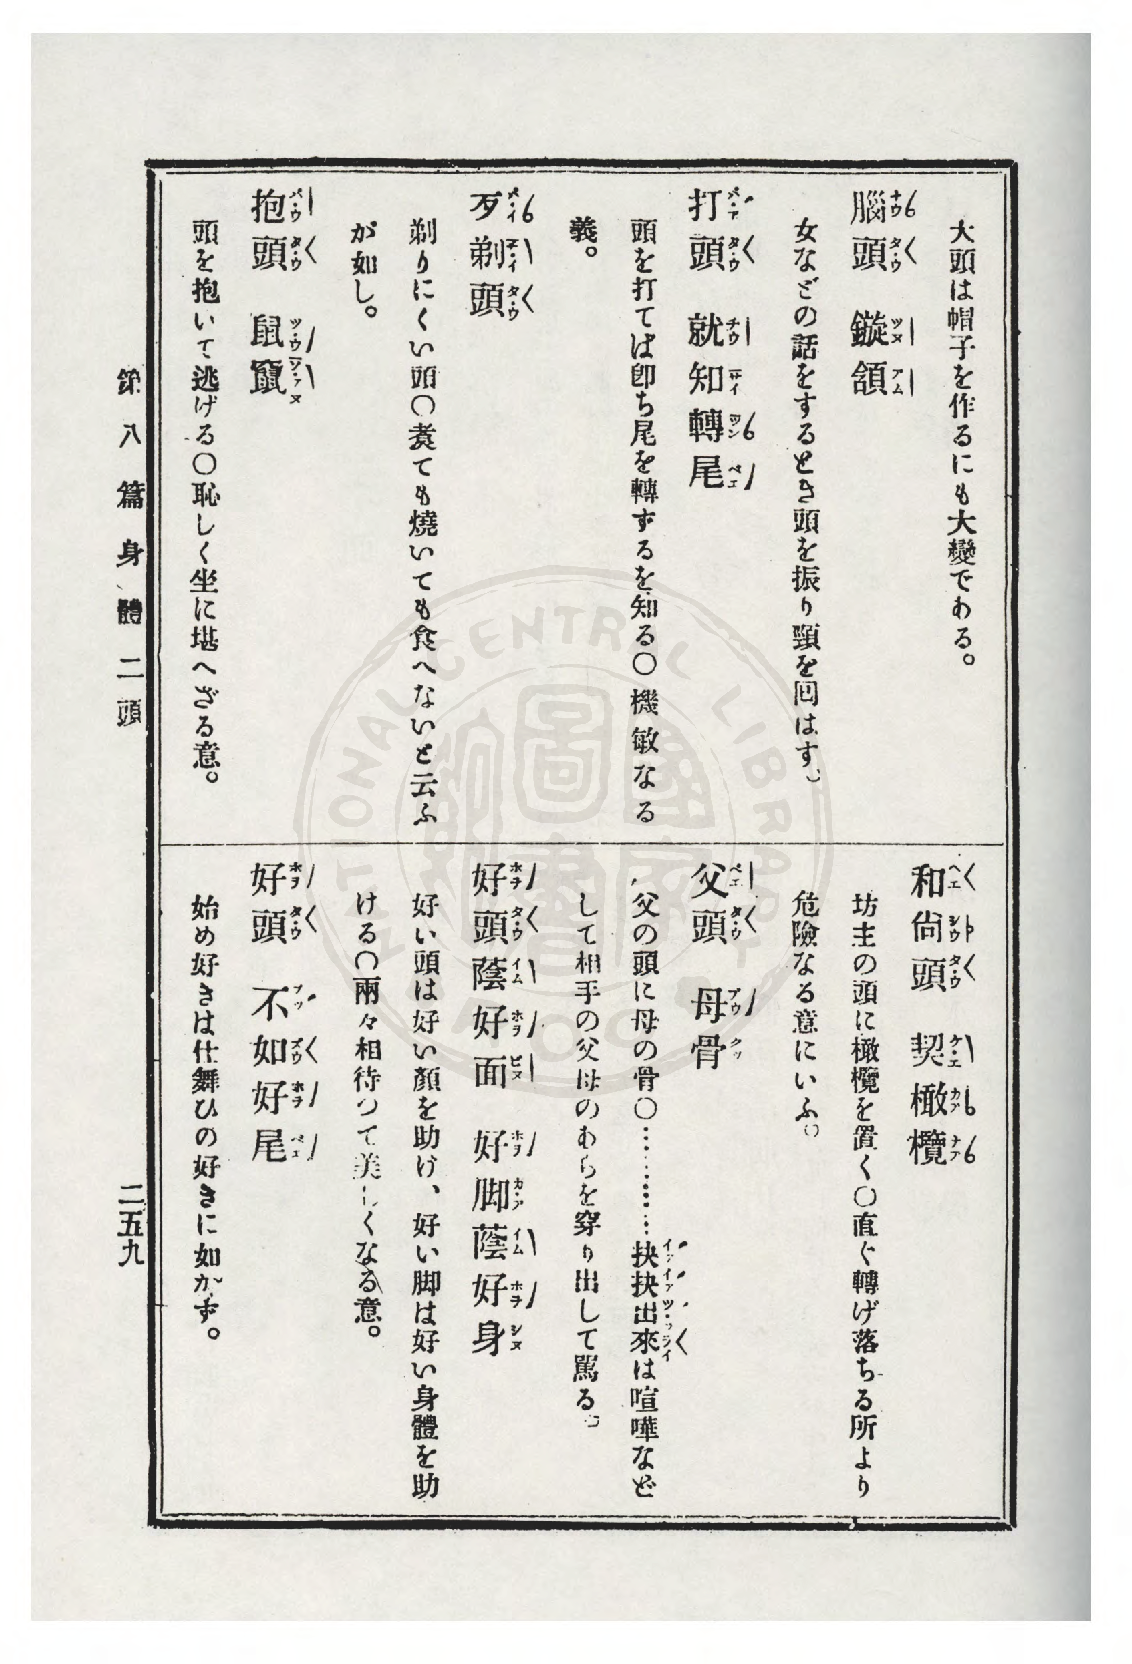 大頭は帽子を作るにも大變である。
腦頭 鏇頷
女などの話をするとき頭を振り頸を回はす。
打頭 就知轉尾
頭を打てば卽ち尾を轉ずるを知る〇機敏なる
義。
歹剃頭
剃りにくい頭〇煮ても燒いても食へないと云ふ
が如し。
抱頭 鼠竄
頭を抱いて逃げる〇恥しく坐に堪へざる意。
和尙頭 契橄欖
坊主の頭に橄欖を置く〇直ぐ轉げ落ちる所より
危險なる意にいふ。
父頭 母骨
父の頭に母の骨〇…………抉抉出來は喧嘩など
して相手の父母のあらを穿り出して罵る。
好頭蔭好面 好脚蔭好身
好い頭は好い顏を助け、好い脚は好い身體を助
ける〇兩々相待つて美しくなる意。
好頭 不如好尾
始め好きは仕舞ひの好きに如かず。
第八篇 身體 二 頭
二五九
NATIONAL CENTRAL LIBRARY